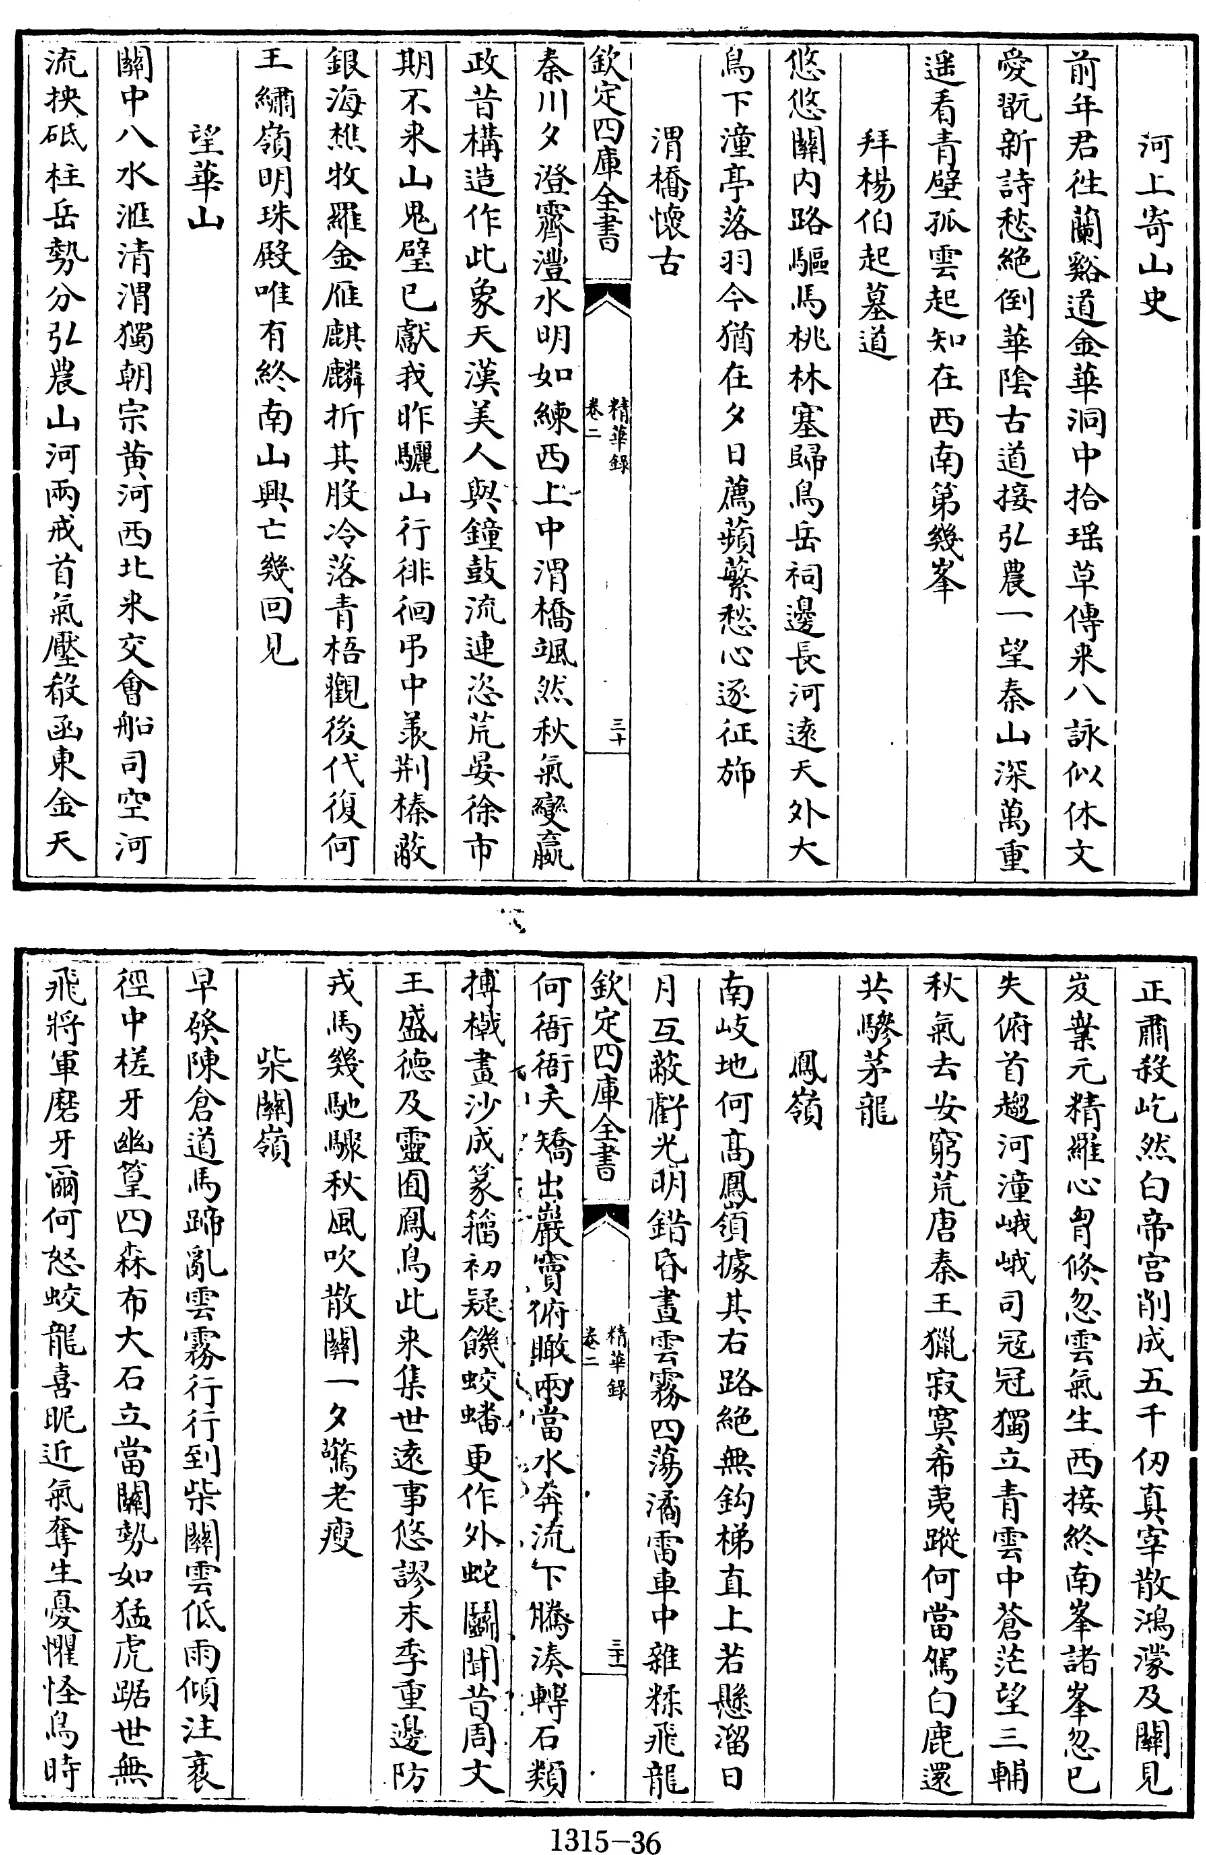 河上寄山史
前年君徃蘭谿道金華洞中拾瑶草傳来八詠似休文
愛翫新詩愁絶倒華陰古道接弘農一望秦山深萬重
遥看青壁孤雲起知在西南第幾峯
拜楊伯起墓道
悠悠關内路驅馬桃林塞歸鳥岳祠邊長河逺天外大
鳥下潼亭落羽今猶在夕日薦蘋蘩愁心逐征斾
渭橋懷古
欽定四庫全書
精華録
卷二
三十
秦川夕澄霽灃水明如練西上中渭橋颯然秋氣變嬴
政昔構造作此象天漢美人與鐘鼓流連恣荒晏徐市
期不来山鬼璧已獻我昨驪山行徘徊弔中羡荆榛蔽
銀海樵牧羅金雁麒麟折其股冷落青梧觀後代復何
王繡嶺明珠殿唯有終南山興亡幾回見
望華山
關中八水滙清渭獨朝宗黄河西北来交會船司空河
流抉砥柱岳勢分弘農山河兩戒首氣壓殽函東金天
正肅殺屹然白帝宫削成五千仞真宰散鴻濛及關見
岌嶪元精羅心胷倐忽雲氣生西接終南峯諸峯忽已
失俯首趨河潼峨峨司冦冠獨立青雲中蒼茫望三輔
秋氣去安窮荒唐秦王獵寂寞希夷蹤何當駕白鹿還
共驂茅龍
鳳嶺
南岐地何髙鳳嶺據其右路絶無鈎梯直上若懸溜日
月互蔽虧光明錯昏晝雲霧四蕩潏雷車中雜糅飛龍
欽定四庫全書
精華録
卷二
三十一
何衙衙夭矯出巖竇俯瞰兩當水奔流下騰湊轉石類
摶檝畫沙成篆籀初疑饑蛟蟠更作外蛇鬬聞昔周文
王盛德及靈囿鳳鳥此来集世逺事悠謬末季重邊防
戎馬幾馳驟秋風吹散關一夕驚老瘦
柴關嶺
早發陳倉道馬蹄亂雲霧行行到柴關雲低雨傾注衰
徑中槎牙幽篁四森布大石立當關勢如猛虎踞世無
飛將軍磨牙爾何怒蛟龍喜昵近氣奪生憂懼怪鳥時
1315-36